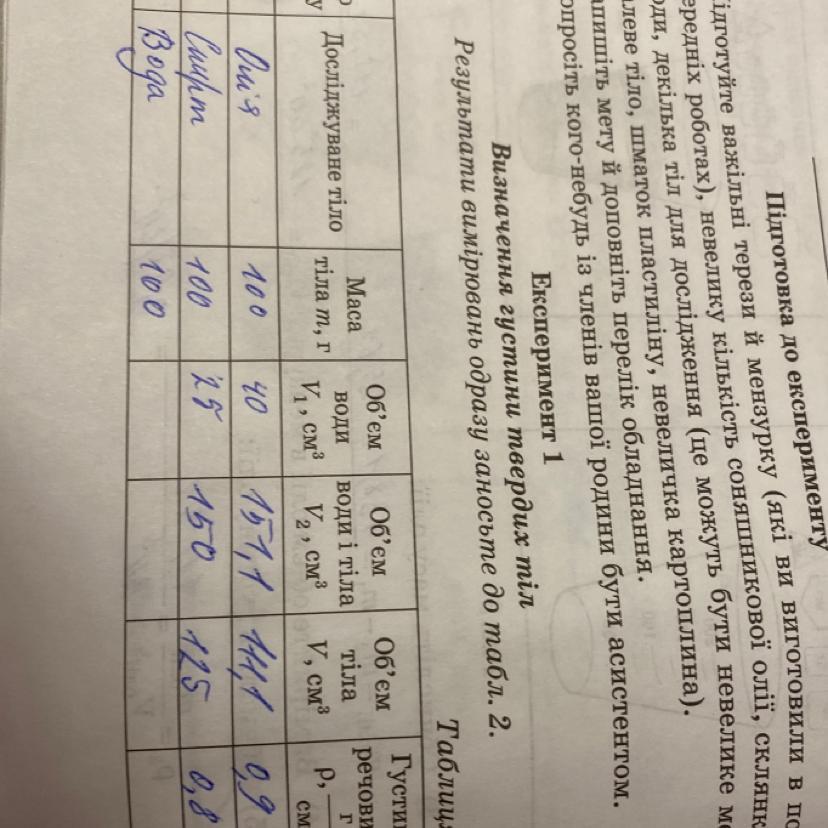 Підготовка до експерименту
ідготуйте важільні терези й мензурку (які ви виготовили в по
ередніх роботах), невелику кількість соняшникової олії, склянк
оди, декілька тіл для дослідження (це можуть бути невелике м
алеве тіло, шматок пластиліну, невеличка картоплина).
апишіть мету й доповніть перелік обладнання.
опросіть кого-небудь із членів вашої родини бути асистентом.
Експеримент 1
Визначення густини твердих тіл
Результати вимірювань одразу заносьте до табл. 2.
Таблиця
Досліджуване тіло
Маса тіла m, г
Об’єм води V₁, см³
Об’єм води і тіла V₂, см³
Об’єм тіла V, см³
Густин речови ρ, г см
Олія 100 40 151,1 111,1 0,9
Спирт 100 25 150 125 0,8
Вода 100